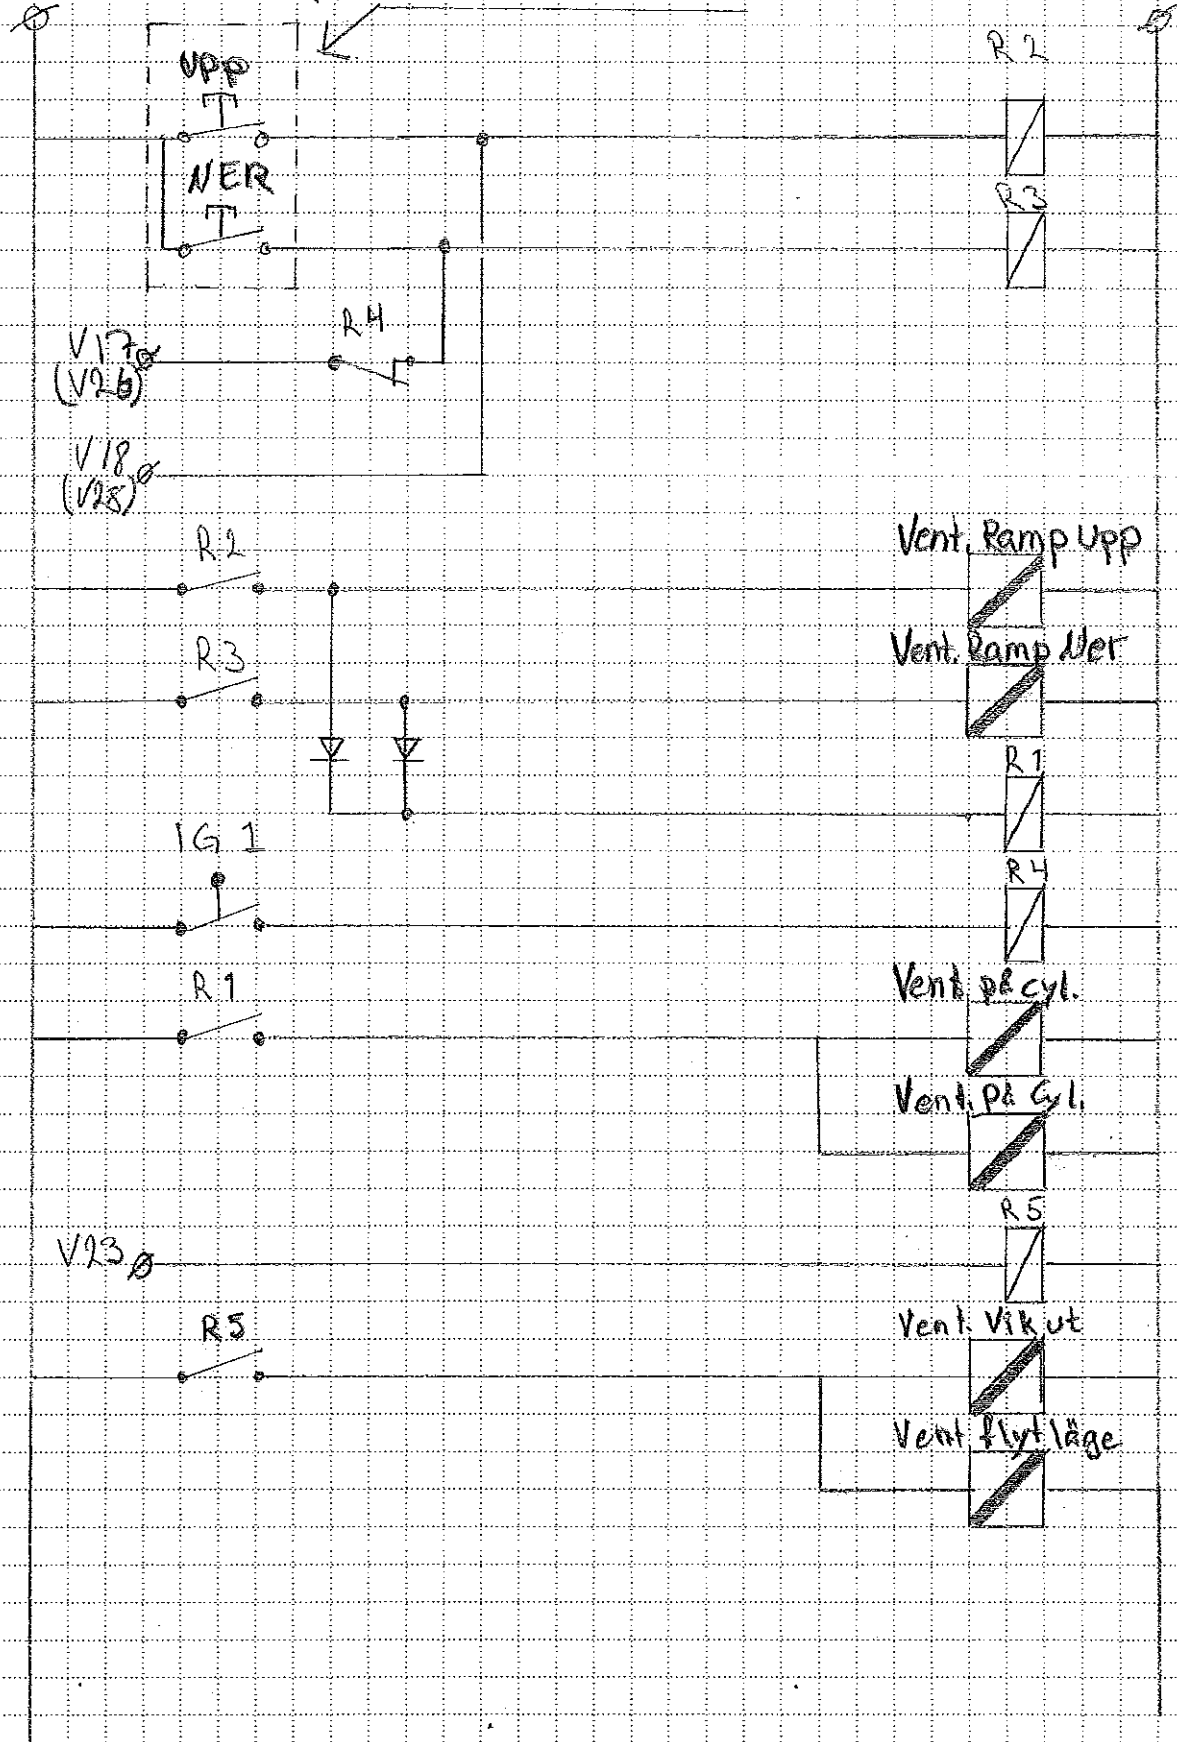 R2
Upp
NER
R3
R4
V17
(V26)
V18
(V28)
R2
Vent. Ramp Upp
R3
Vent. Ramp Ner
R1
IG 1
R4
R1
Vent. på cyl.
Vent. på Cyl.
R5
V23
R5
Vent. Vik ut
Vent flytläge